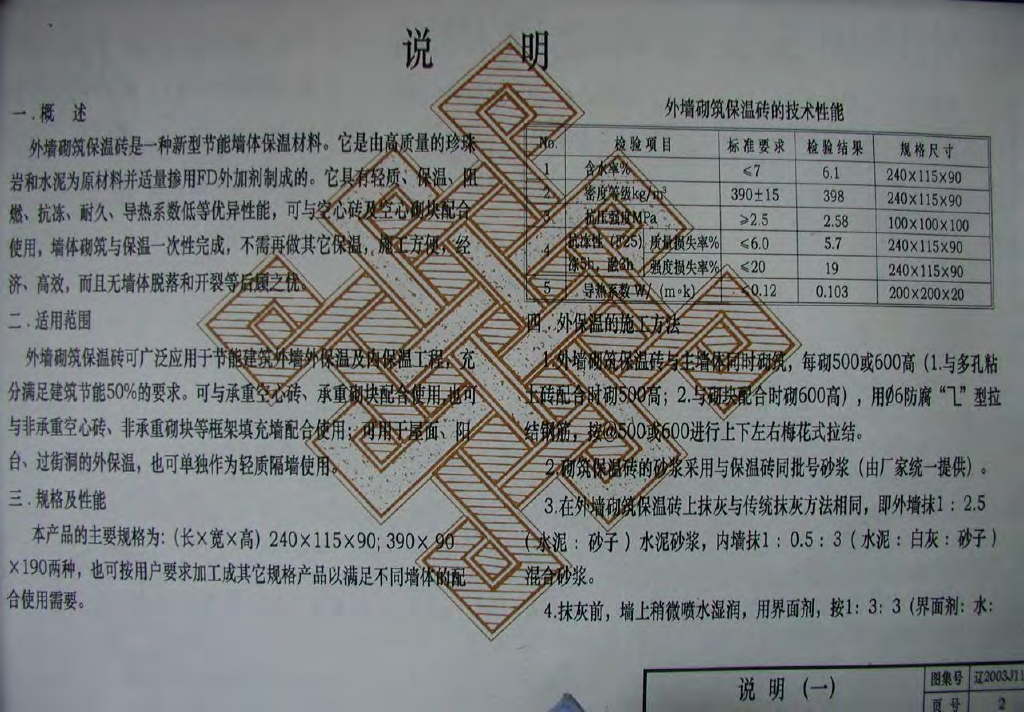 说 明
一.概 述
外墙砌筑保温砖是一种新型节能墙体保温材料。它是由高质量的珍珠
岩和水泥为原材料并适量掺用FD外加剂制成的。它具有轻质、保温、阻
燃、抗冻、耐久、导热系数低等优异性能，可与空心砖及空心砌块配合
使用，墙体砌筑与保温一次性完成，不需再做其它保温，施工方便，经
济、高效，而且无墙体脱落和开裂等后顾之忧。
二.适用范围
外墙砌筑保温砖可广泛应用于节能建筑外墙外保温及内保温工程，充
分满足建筑节能50%的要求。可与承重空心砖、承重砌块配合使用,也可
与非承重空心砖、非承重砌块等框架填充墙配合使用；可用于屋面、阳
台、过街洞的外保温，也可单独作为轻质隔墙使用。
三.规格及性能
本产品的主要规格为:(长×宽×高) 240×115×90; 390×90
×190两种，也可按用户要求加工成其它规格产品以满足不同墙体的配
合使用需要。
外墙砌筑保温砖的技术性能
No. 检验项目 标准要求 检验结果 规格尺寸
1 含水率% ≤7 6.1 240×115×90
2 密度等级kg/m³ 390±15 398 240×115×90
3 抗压强度MPa ≥2.5 2.58 100×100×100
4 抗冻性 (F25) 质量损失率% ≤6.0 5.7 240×115×90
冻5h, 融3h 强度损失率% ≤20 19 240×115×90
5 导热系数 W/ (m∘k) ≤0.12 0.103 200×200×20
四.外保温的施工方法
1.外墙砌筑保温砖与主墙体同时砌筑，每砌500或600高 (1.与多孔粘
土砖配合时砌500高；2.与砌块配合时砌600高) ，用Ø6防腐“乁”型拉
结钢筋，按@500或600进行上下左右梅花式拉结。
2.砌筑保温砖的砂浆采用与保温砖同批号砂浆 (由厂家统一提供) 。
3.在外墙砌筑保温砖上抹灰与传统抹灰方法相同，即外墙抹1：2.5
(水泥：砂子) 水泥砂浆，内墙抹1：0.5：3 (水泥：白灰：砂子)
混合砂浆。
4.抹灰前，墙上稍微喷水湿润，用界面剂，按1：3：3 (界面剂：水：
说 明 (一)
图集号 辽2003J11
页 号 2